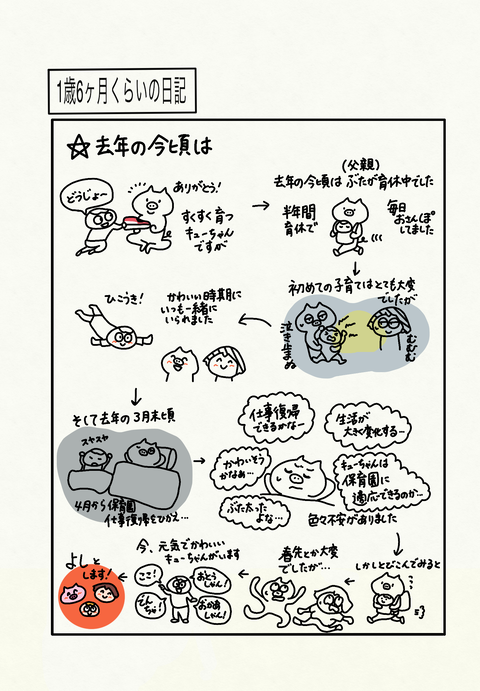 1歳6ヶ月くらいの日記
☆去年の今頃は
どうじょ〜
ありがとう!
すくすく育つ
キューちゃん
ですが
(父親)
去年の今頃は ぶたが育休中でした
半年間
育休で
毎日
おさんぽ
してました
初めての子育てはとても大変
でしたが
泣き止まぬ
むむむ
かわいい時期に
いつも一緒に
いられました
ひこうき!
そして去年の3月末頃
スヤスヤ
4月から保育園
仕事復帰をひかえ…
仕事復帰
できるかなー
生活が
大きく変化する…
かわいそう
かなぁ…
キューちゃんは
保育園に
適応できるのか…
ぶた太った
よな…
色々不安がありました
しかしとびこんでみると
春先とか大変
でしたが…
今、元気でかわいい
キューちゃんがいます
ここ!
おとう
しゃん!
おかあ
しゃん!
よしと
します!